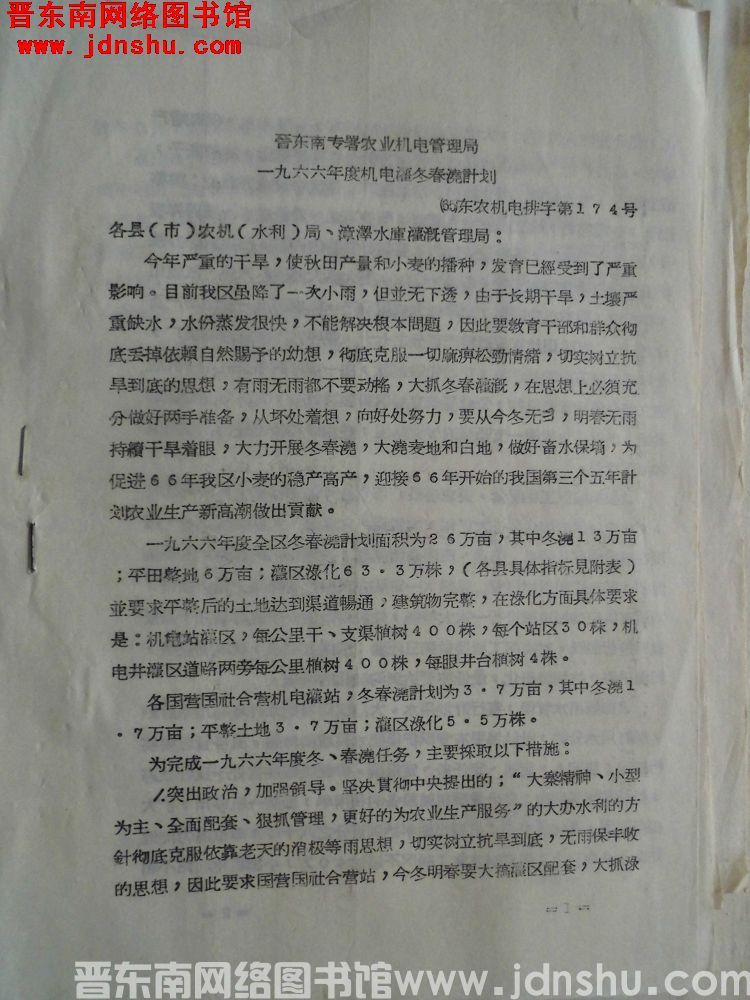 晋东南网络图书馆
www.jdnshu.com
晋东南专署农业机电管理局
一九六六年度机电灌冬春澆計划
东农机电排字第174号
各县(市)农机(水利)局、漳澤水庫灌漑管理局:
今年严重的干旱,使秋田产量和小麦的播种,发育已經受到了严重
影响。目前我区虽降了一次小雨,但並无下透,由于长期干旱,土壤严
重缺水,水份蒸发很快,不能解决根本問題,因此要教育干部和群众彻
底丢掉依賴自然賜予的幼想,彻底克服一切麻痹松勁情緒,切实树立抗
旱到底的思想,有雨无雨都不要动搖,大抓冬春灌漑,在思想上必須充
分做好两手准备,从坏处着想,向好处努力,要从今冬无,明春无雨
持續干旱着眼,大力开展冬春澆,大澆麦地和白地,做好畜水保墒,为
促进66年我区小麦的稳产高产,迎接66年开始的我国第三个五年計
划农业生产新高潮做出貢献。
一九六六年度全区冬春澆計划面积为26万亩,其中冬澆13万亩
;平田整地6万亩;灌区綠化63.3万株,(各县具体指标見附表)
並要求平整后的土地达到渠道暢通,建筑物完整,在綠化方面具体要求
是:机电站灌区,每公里干、支渠植树400株,每个站区30株,机
电井灌区道路两旁每公里植树400株,每眼井台植树4株。
各国营国社合营机电灌站,冬春澆計划为3.7万亩,其中冬澆1
.7万亩;平整土地3.7万亩;灌区綠化5.5万株。
为完成一九六六年度冬、春澆任务,主要採取以下措施:
1.突出政治,加强領导。坚决貫彻中央提出的;“大寨精神、小型
为主、全面配套、狠抓管理,更好的为农业生产服务”的大办水利的方
針彻底克服依靠老天的消极等雨思想,切实树立抗旱到底,无雨保丰收
的思想,因此要求国营国社合营站,今冬明春要大搞灌区配套,大抓綠
-1-
晋东南网络图书馆www.jdnshu.com